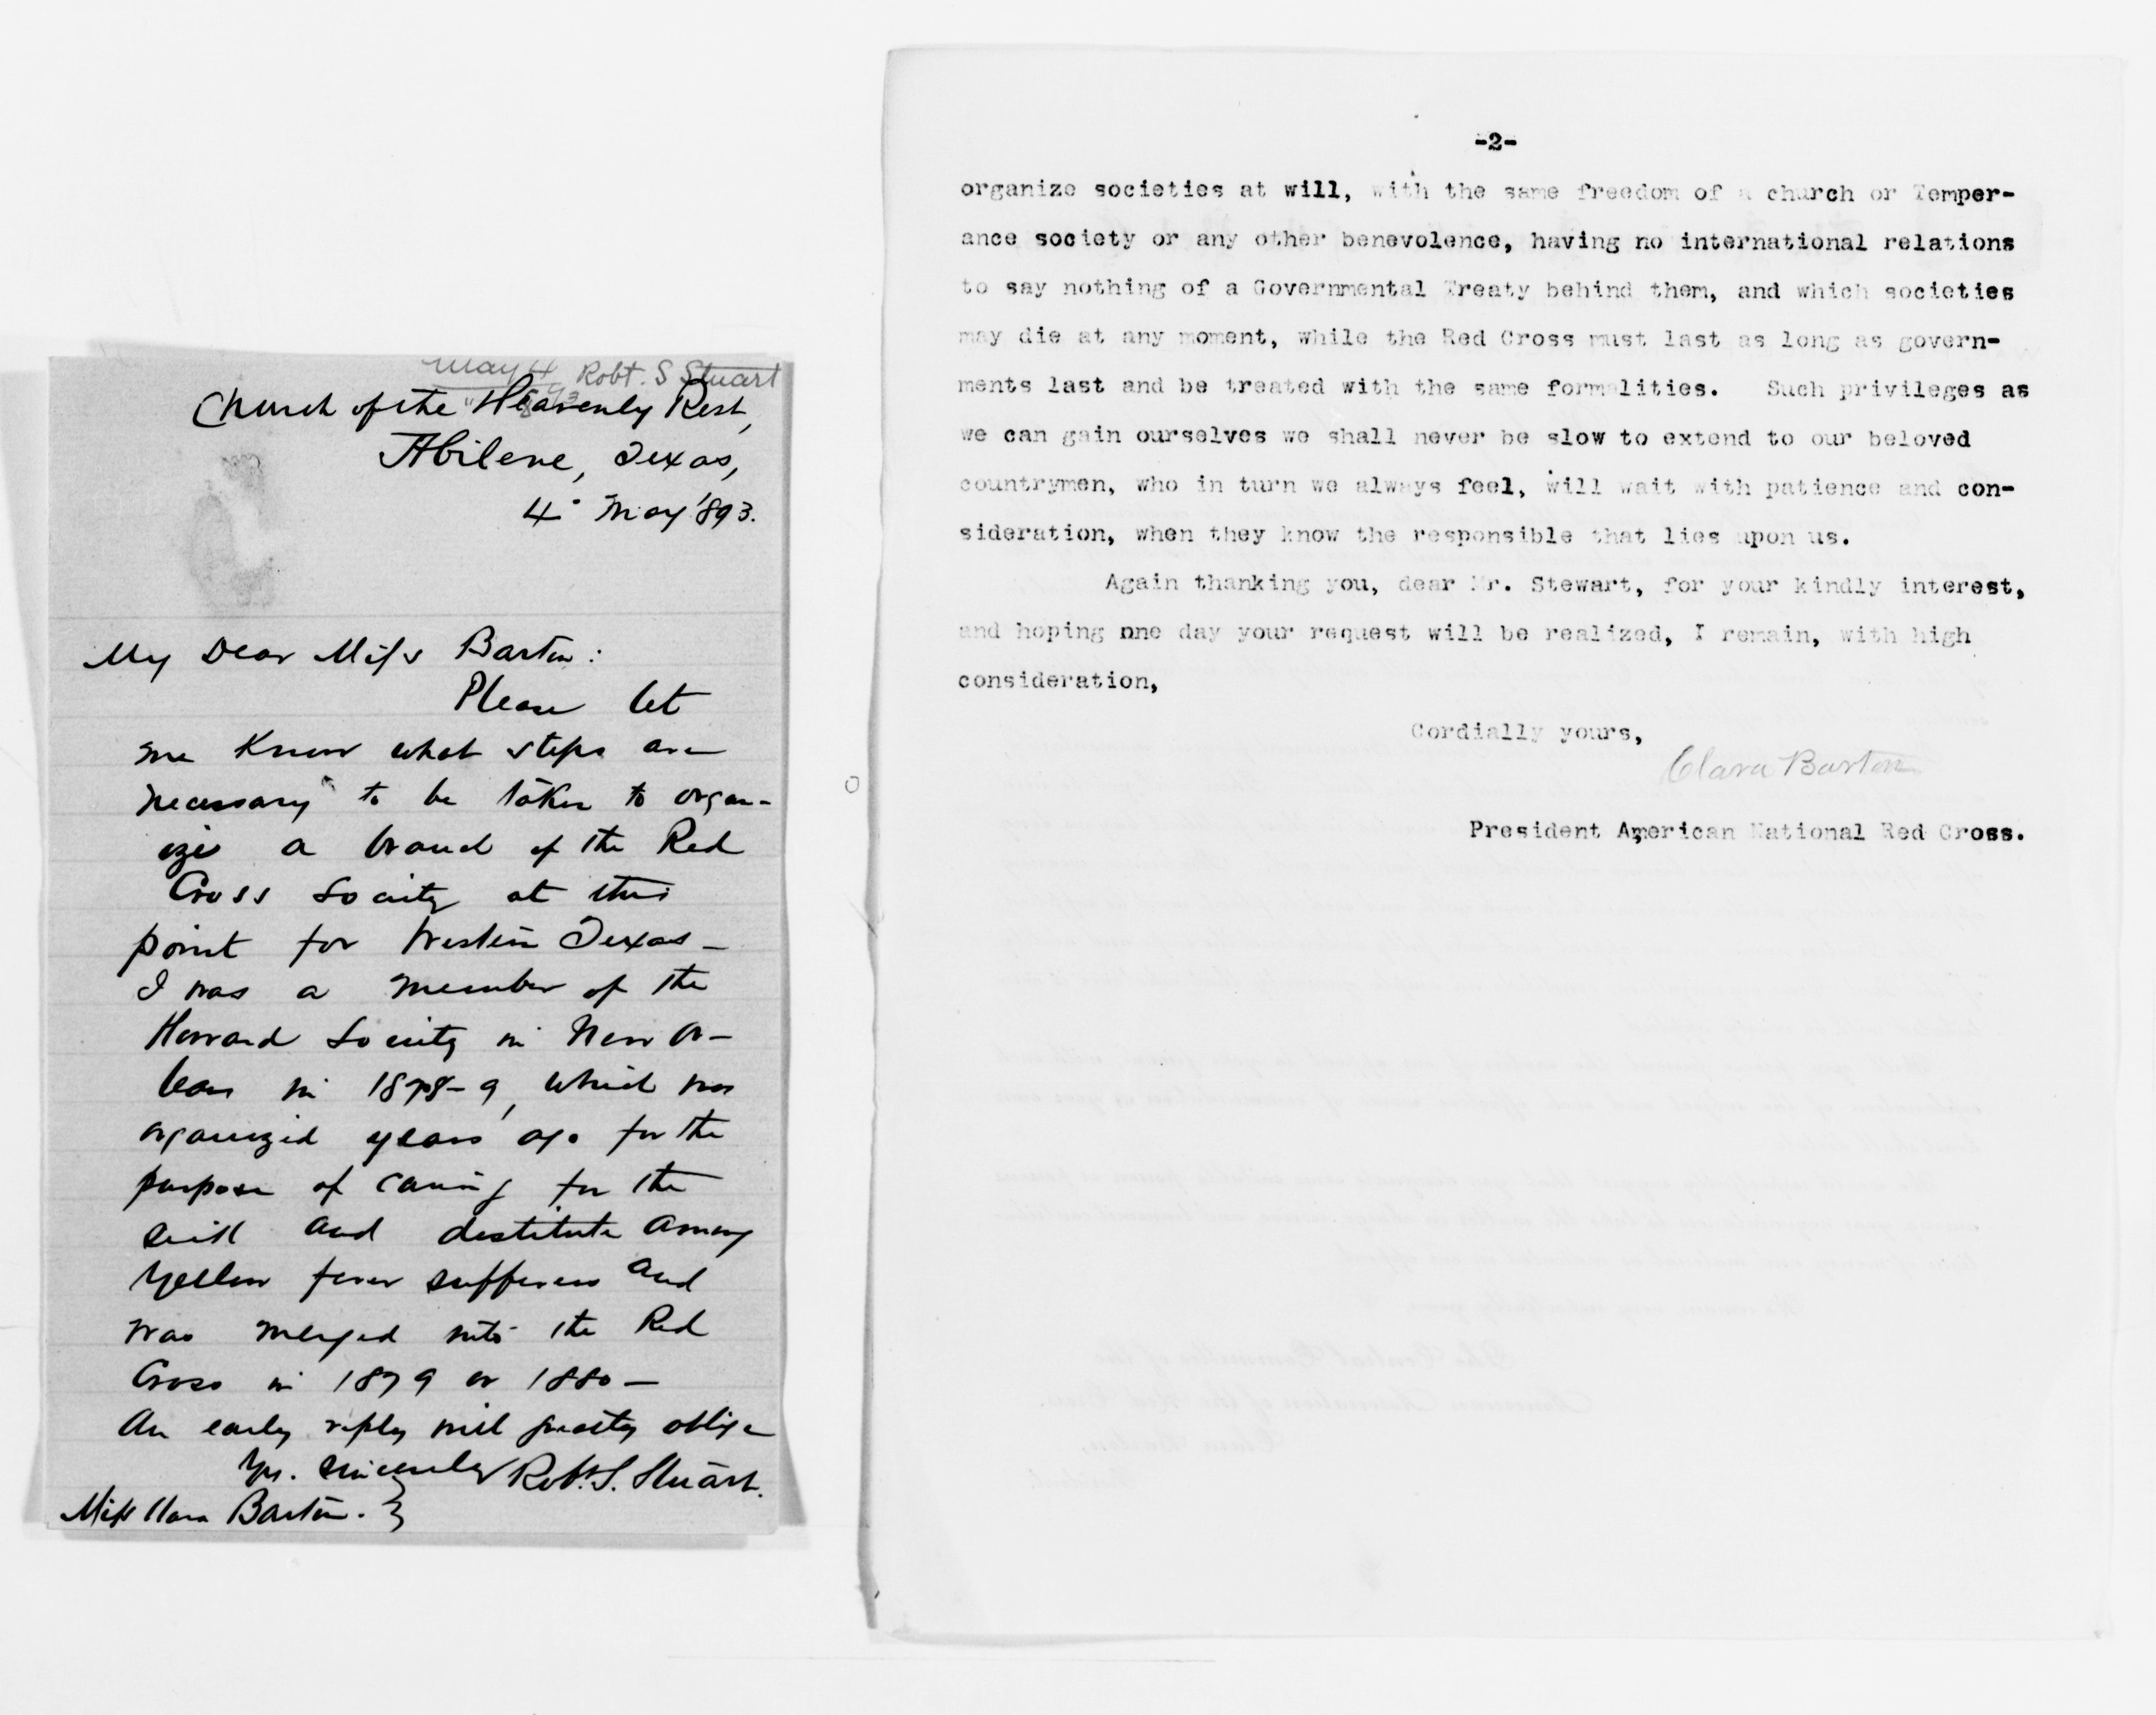 May 4 Robt. S Stuart
Church of the "Heavenly Rest,
Abilene, Texas,
4. May '893.
My Dear Miss Barton:
Please let
me know what steps are
necessary to be taken to organ-
ize a branch of the Red
Cross Society at this
point for Western Texas—
I was a member of the
Howard Society in New Or-
leans in 1878-9, which was
organized years ago for the
purpose of caring for the
sick and destitute among
Yellow fever sufferers and
was merged into the Red
Cross in 1879 or 1880—
An early reply will greatly oblige
Yrs. sincerely Robt. S. Stuart.
Miss Clara Barton. }
-2-
organize societies at will, with the same freedom of a church or Temper-
ance society or any other benevolence, having no international relations
to say nothing of a Governmental Treaty behind them, and which societies
may die at any moment, while the Red Cross must last as long as govern-
ments last and be treated with the same formalities. Such privileges as
we can gain ourselves we shall never be slow to extend to our beloved
countrymen, who in turn we always feel, will wait with patience and con-
sideration, when they know the responsible that lies upon us.
Again thanking you, dear Mr. Stewart, for your kindly interest,
and hoping nne day your request will be realized, I remain, with high
consideration,
Cordially yours,
Clara Barton
President American National Red Cross.